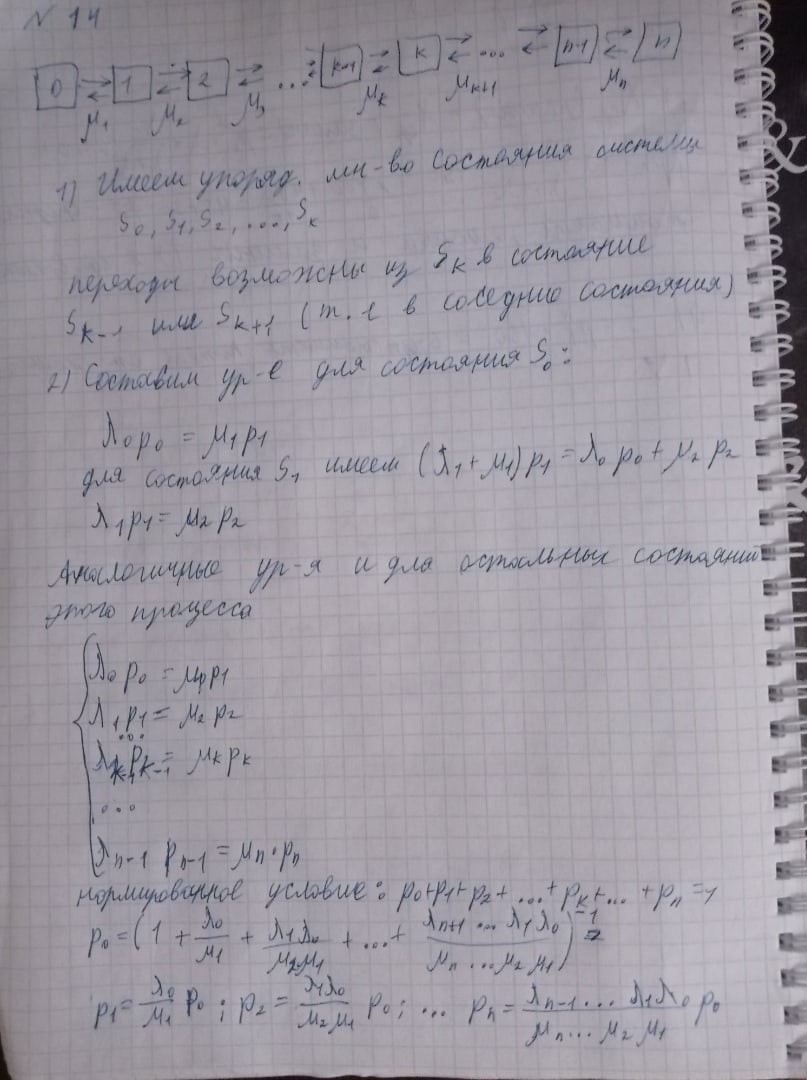 N 14
0 1 2 ... k-1 k ... n-1 n
μ1 μ2 μ3 μk μk+1 μn
1) Имеем упоряд. мн-во состояния системы
S0, S1, S2, ..., Sk
переходы возможны из Sk в состояние
Sk-1 или Sk+1 (т.е в соседние состояния)
2) Составим ур-е для состояния S0:
λ0p0 = μ1p1
для состояния S1 имеем (λ1+μ1)p1 = λ0p0 + μ2p2
λ1p1 = μ2p2
Аналогичные ур-я и для остальных состояний
этого процесса
λ0p0 = μ1p1
λ1p1 = μ2p2
...
λk-1pk-1 = μkpk
...
λn-1 pn-1 = μn·pn
нормированное условие: p0+p1+p2+...+pk+...+pn=1
p0 = (1 + λ0/μ1 + λ1λ0/μ2μ1 + ... + λn+1 ... λ1λ0/μn...μ2μ1)^-1
p1 = λ0/μ1 p0; p2 = λ1λ0/μ2μ1 p0; ... pn = λn-1 ... λ1λ0/μn...μ2μ1 p0